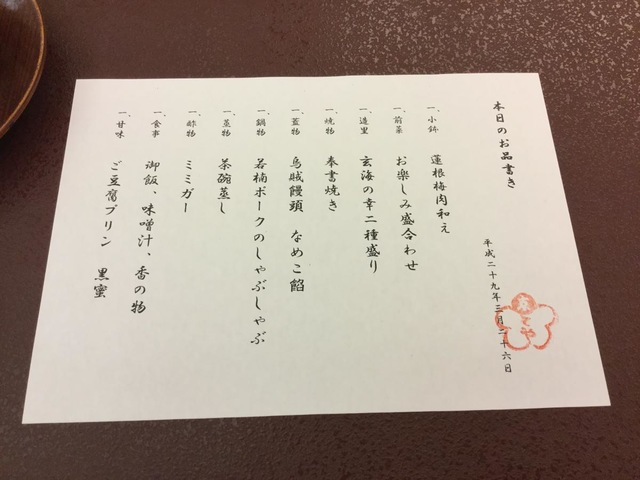 本日のお品書き
平成二十九年三月二十六日
一、小鉢 蓮根梅肉和え
一、前菜 お楽しみ盛合わせ
一、造里 玄海の幸二種盛り
一、焼物 奉書焼き
一、蓋物 烏賊饅頭 なめこ餡
一、鍋物 若楠ポークのしゃぶしゃぶ
一、蒸物 茶碗蒸し
一、酢物 ミミガー
一、食事 御飯、味噌汁、香の物
一、甘味 ご豆腐プリン 黒蜜